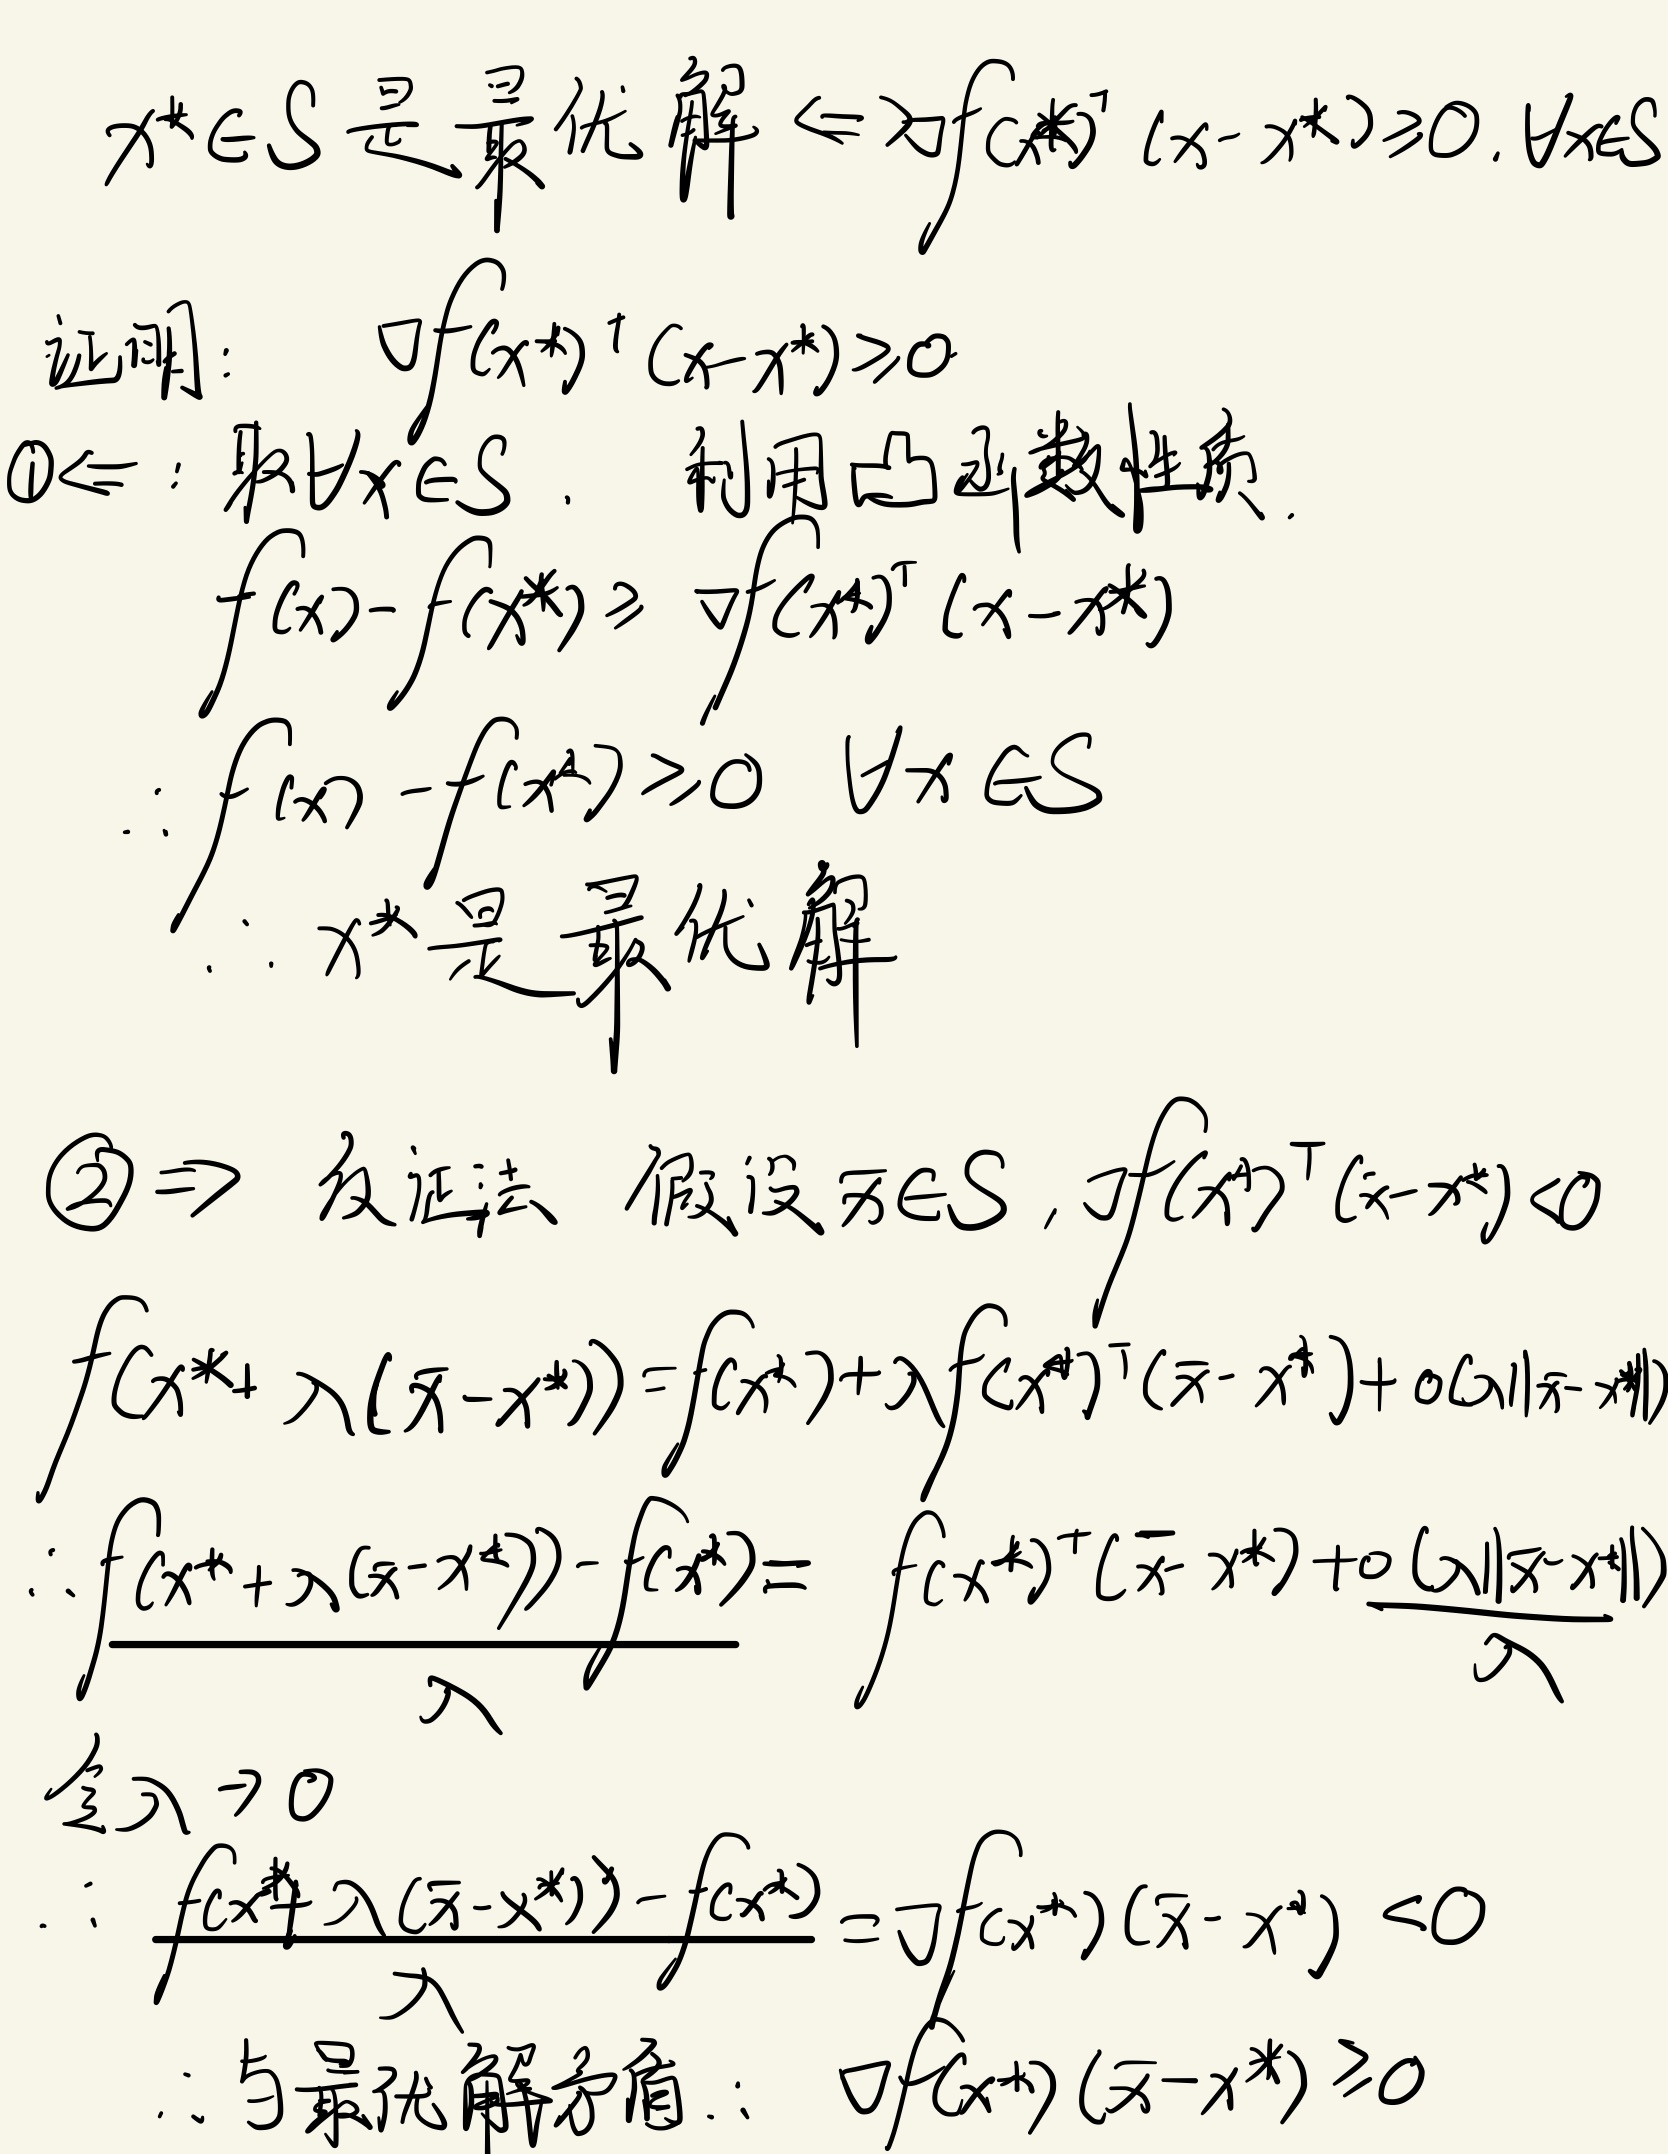 x*∈S是最优解 <=> ∇f(x*)ᵀ (x-x*)≥0. ∀x∈S
证明: ∇f(x*)ᵀ (x-x*)≥0
①<=: 取∀x∈S. 利用凸函数性质.
f(x)-f(x*)≥ ∇f(x*)ᵀ (x-x*)
∴ f(x)-f(x*)≥0 ∀x∈S
∴ x*是最优解
②=> 反证法 假设x̄∈S, ∇f(x*)ᵀ(x-x*)<0
f(x*+λ(x̄-x*))=f(x*)+λf(x*)ᵀ(x̄-x*)+o(λ||x̄-x*||)
∴ (f(x*+λ(x̄-x*))-f(x*))/λ = f(x*)ᵀ(x̄-x*)+o(λ||x̄-x*||)/λ
令λ→0
∴ (f(x*+λ(x̄-x*))-f(x*))/λ = ∇f(x*)(x̄-x*)<0
∴与最优解矛盾∴ ∇f(x*)(x̄-x*)≥0